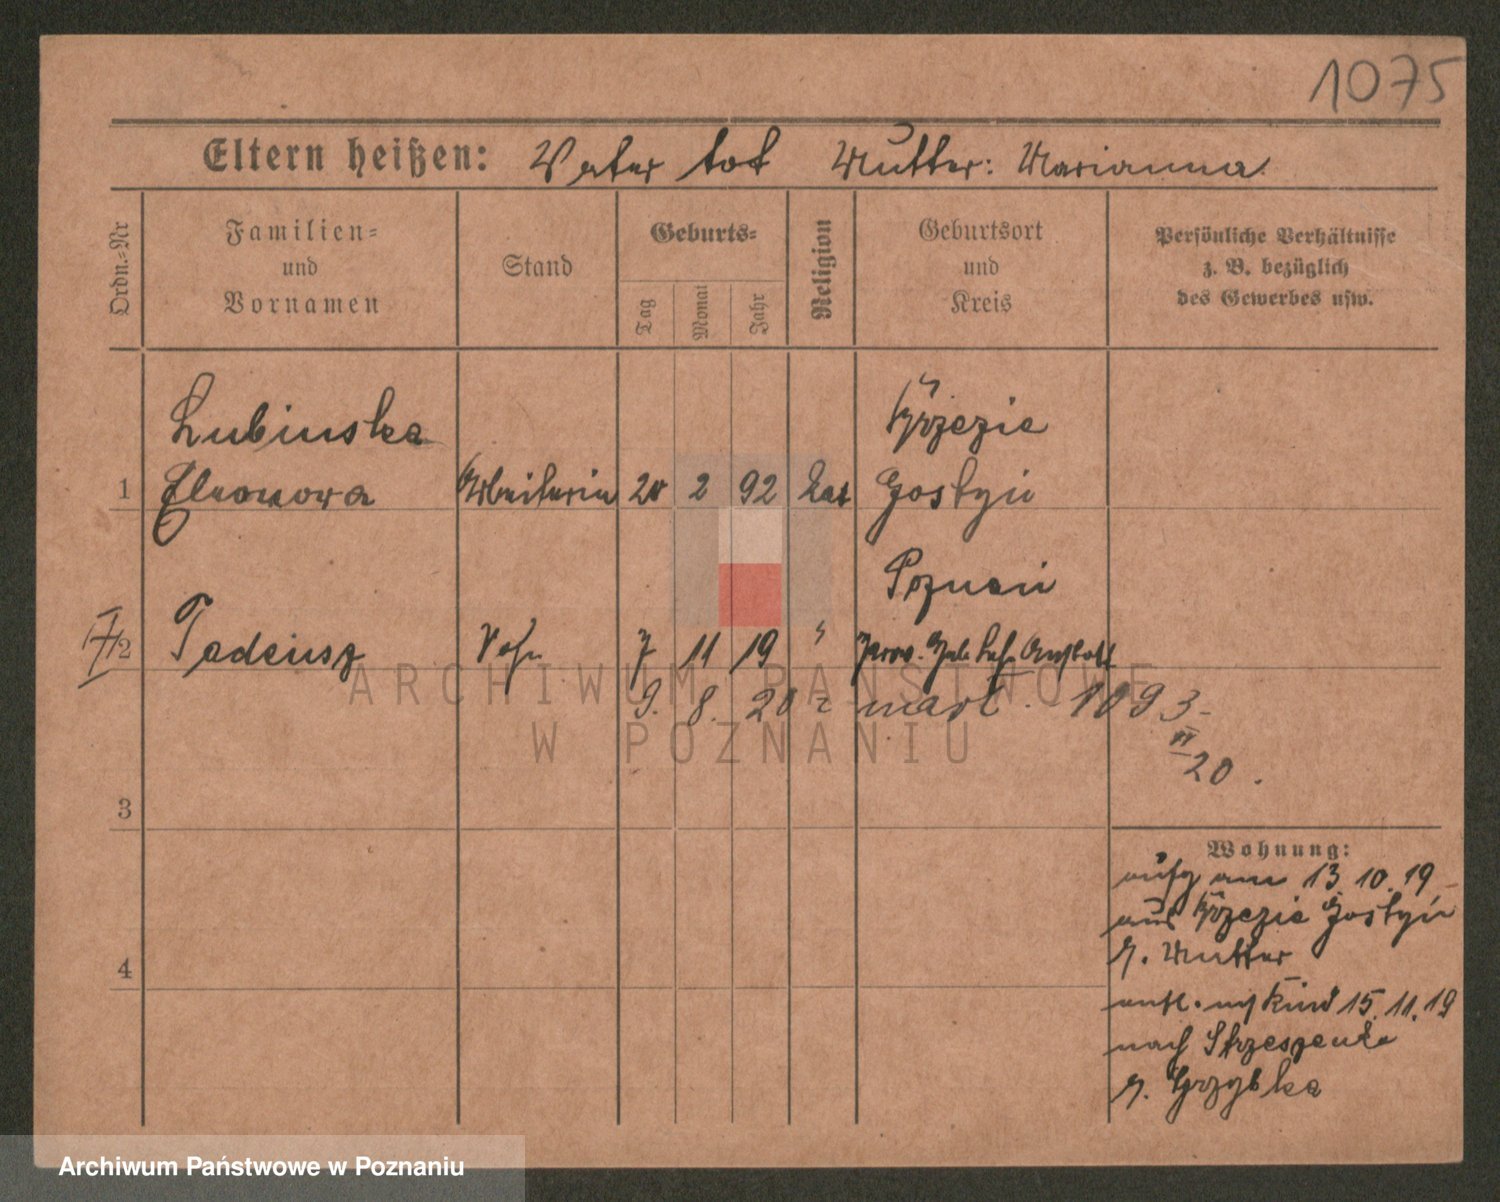 1075
Eltern heißen: Vater tot Mutter: Marianna
Ordn.-Nr
Familien=
und
Vornamen
Stand
Geburts=
Tag
Monat
Jahr
Religion
Geburtsort
und
Kreis
Persönliche Verhältnisse
z. B. bezüglich
des Gewerbes usw.
Lubinska
1 Eleonora Arbeiterin 20 2 92 kat
Gostyń
Poznań
2 Tadeusz 7 11 19 "
Prov. Heb. Anstalt
9. 8. 20 1093
VI
20.
3
4
Wohnung:
aufg am 13 10. 19
aus Gostyń
z. Mutter
entl. m Kind 15. 11. 19
nach
z. Grzybka
ARCHIWUM PAŃSTWOWE
W POZNANIU
Archiwum Państwowe w Poznaniu